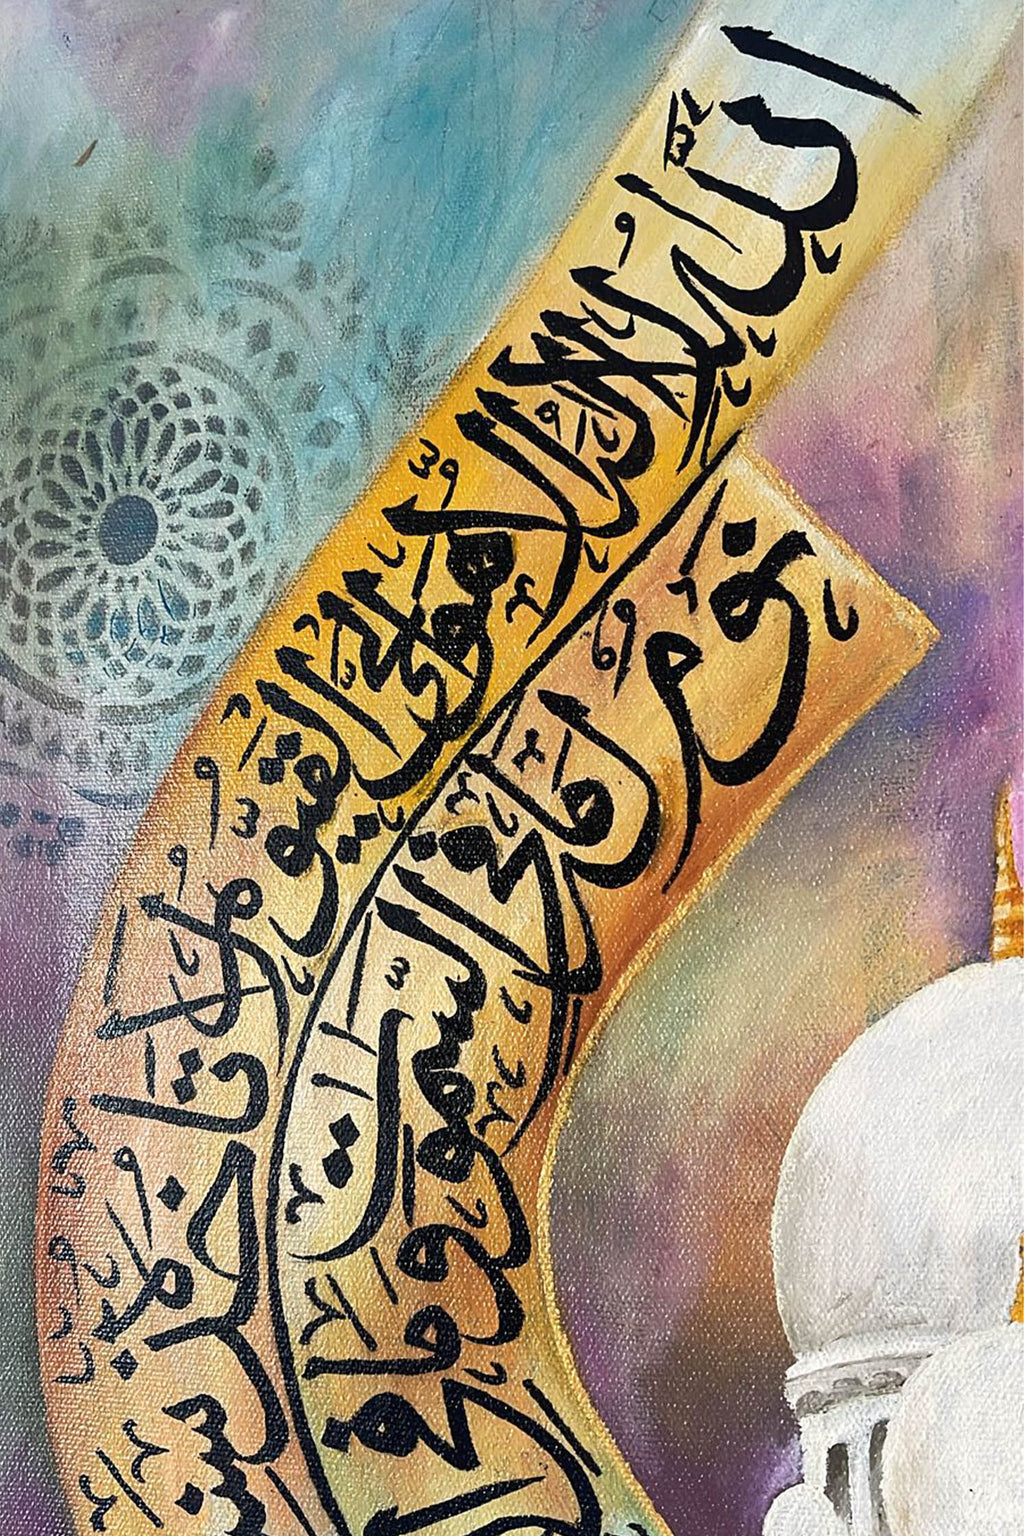 الله لا اله الا هو الحي القيوم لا تاخذه
نوم له ما في السموت وما في